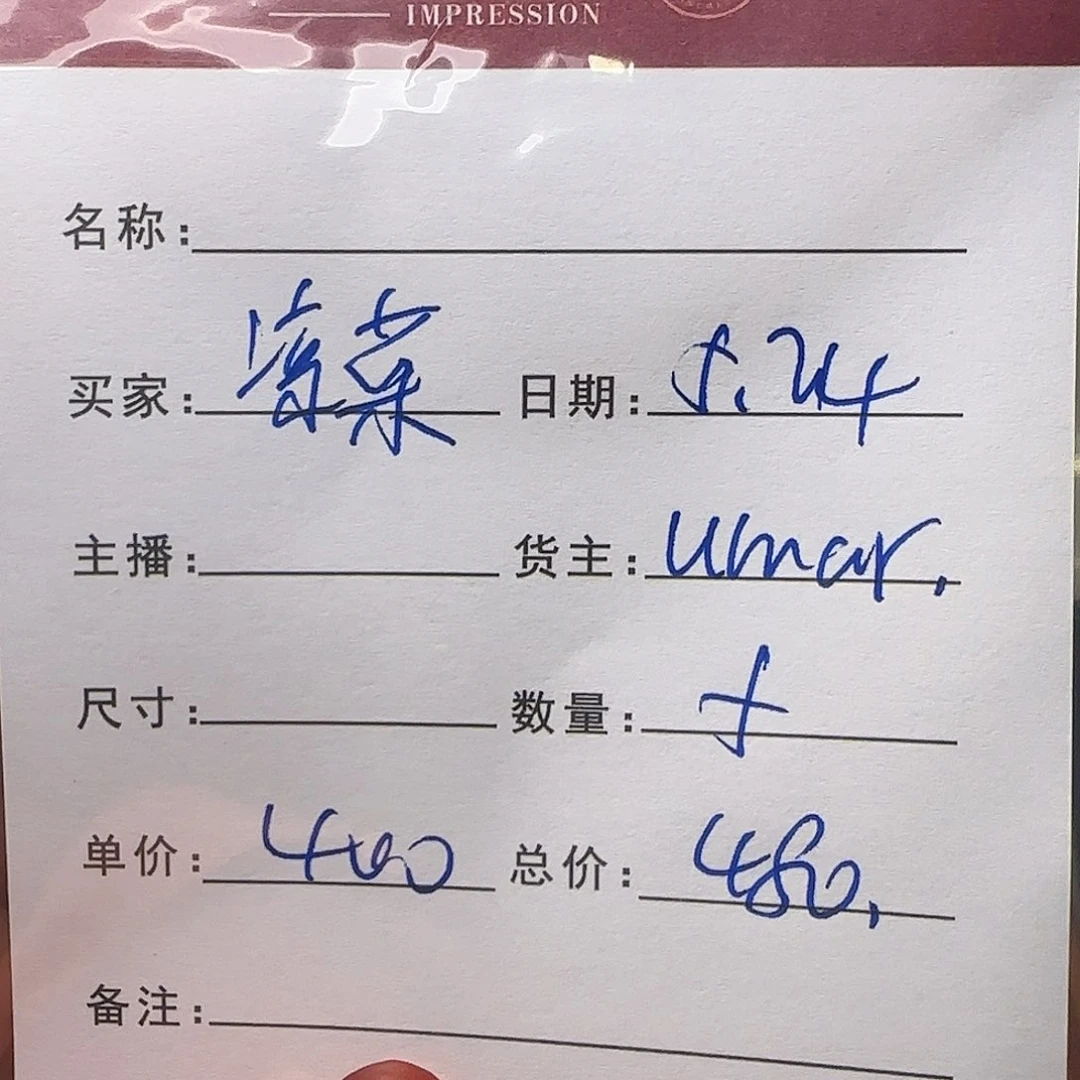 IMPRESSION
名称:
买家: 凉菜 日期: 5.24
主播: 货主: umar.
尺寸: 数量:
单价: 400 总价: 480.
备注: